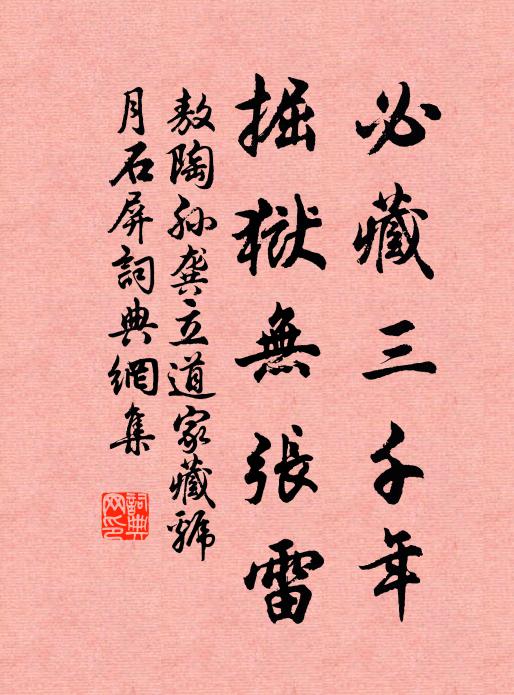 必藏三千年
掘獄無張雷
敖陶孙龚立道家藏號
月石屏詞典網集
詞典網印